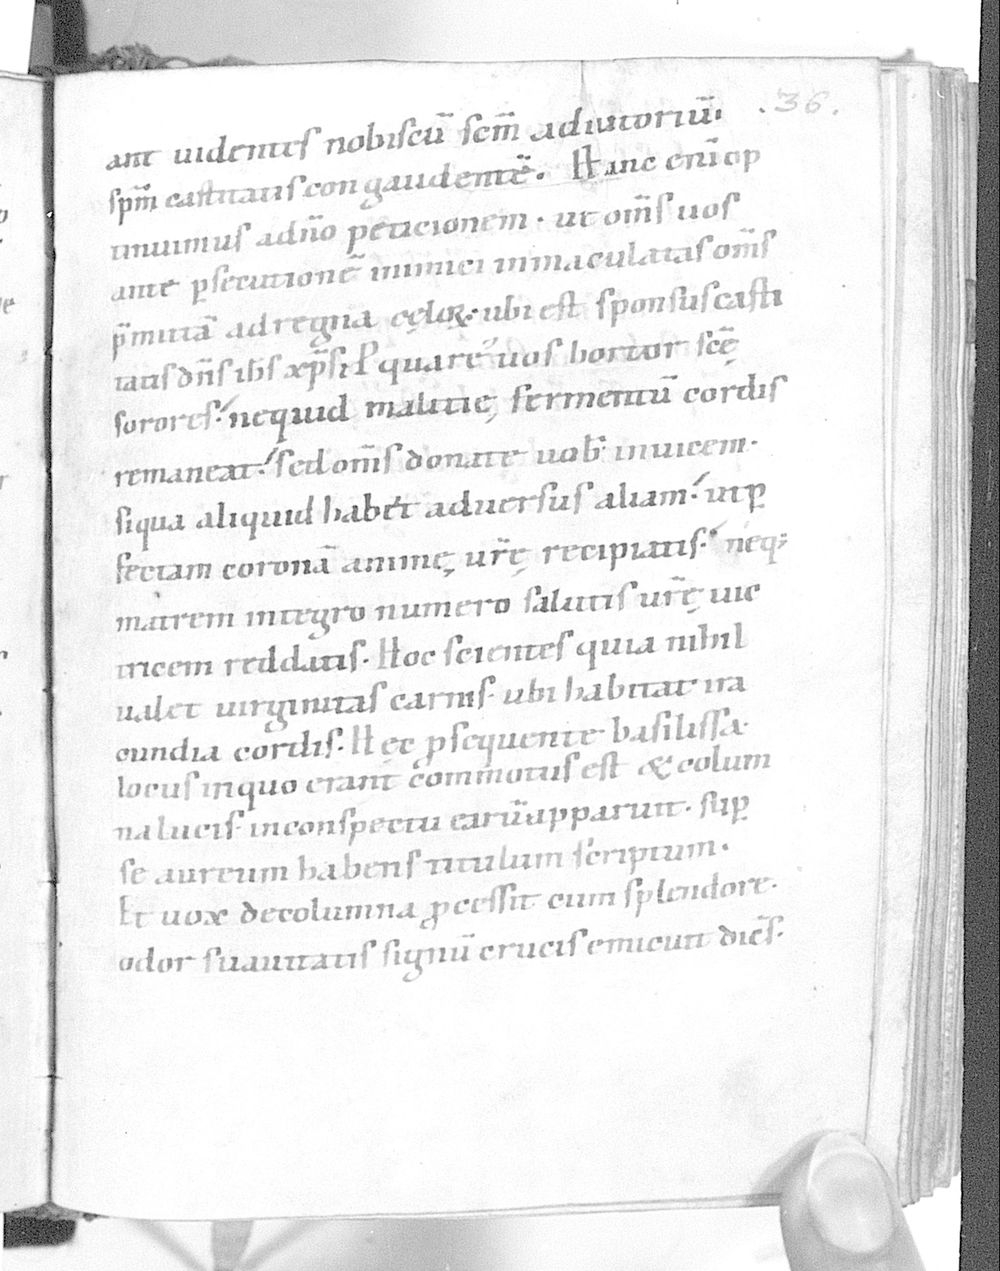 .36.
ant uidentes nobiscū scm̄ adiutoriū.
spm̄ castitatis congaudentē. Hanc enī op
tinuimus ad dn̄o peticionem. ut om̄s uos
ante ꝑsecutionē inimici inmaculatas om̄s
p̄mittā ad regna cęloꝝ. ubi est sponsus casti
tatis dn̄s ih̄s xp̄s. P quare uos hortor scę̄
sorores. nequid malitię fermentū cordis
remaneat. sed om̄s donate uob̄ inuicem.
siqua aliquid habet aduersus aliam. ut ꝑ
fectam coronā animę ur̄ę recipiatis. neq;
matrem integro numero salutis ur̄ę uic
tricem reddatis. Hoc scientes quia nihil
ualet uirginitas carnis. ubi habitat ira
cundia cordis. Hęc ꝓsequente basilissa.
locus inquo erant commotus est & colum
na lucis. inconspectu earū apparuit. suꝑ
se aureum habens titulum scriptum.
Et uox decolumna ꝓcessit cum splendore.
odor suauitatis signū crucis emicuit dicēs.